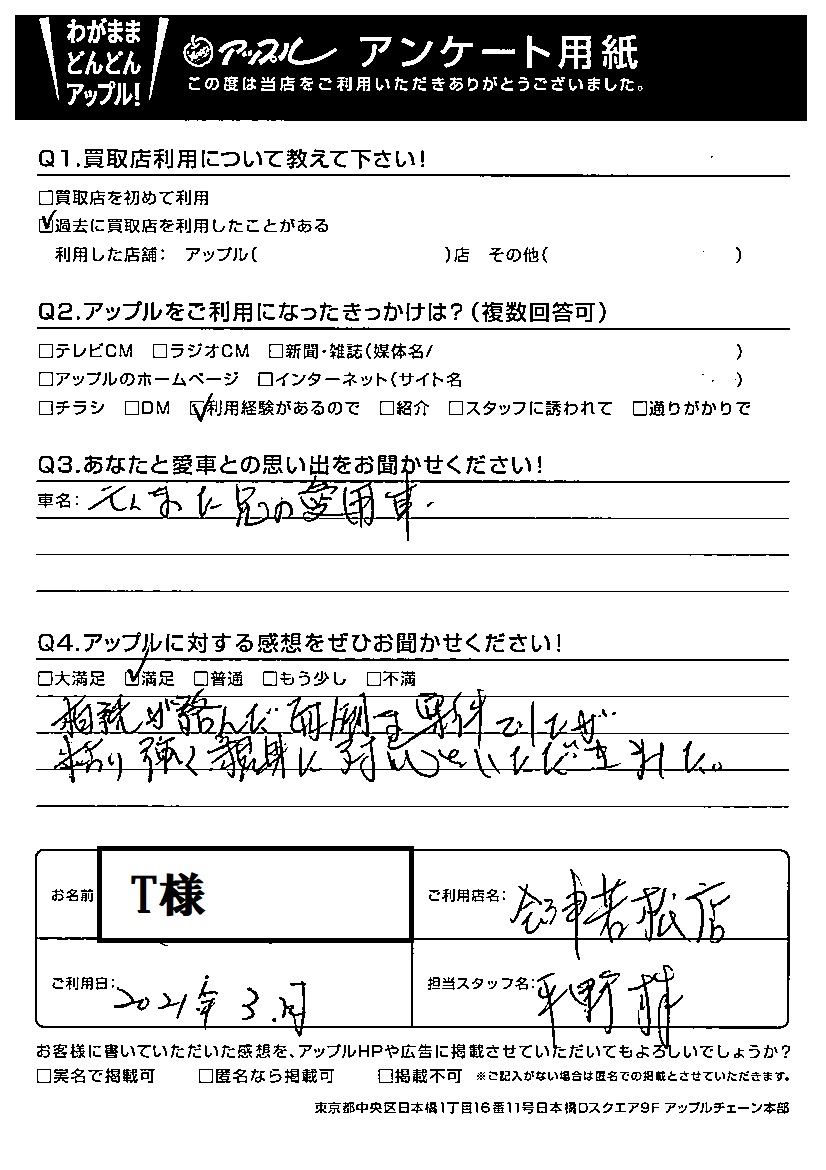 わがまま
どんどん
アップル!
アップル アンケート用紙
この度は当店をご利用いただきありがとうございました。
Q1.買取店利用について教えて下さい!
□買取店を初めて利用
☑過去に買取店を利用したことがある
利用した店舗: アップル( )店 その他( )
Q2.アップルをご利用になったきっかけは?(複数回答可)
□テレビCM □ラジオCM □新聞・雑誌(媒体名/ )
□アップルのホームページ □インターネット(サイト名 )
□チラシ □DM ☑利用経験があるので □紹介 □スタッフに誘われて □通りがかりで
Q3.あなたと愛車との思い出をお聞かせください!
車名: 兄の愛用車.
Q4.アップルに対する感想をぜひお聞かせください!
□大満足 ☑満足 □普通 □もう少し □不満
相続が絡んだ面倒な案件でしたが
粘り強く親身に対応をいただきました。
お名前 T様
ご利用店名: 会津若松店
ご利用日: 2021年3.月
担当スタッフ名: 平野 様
お客様に書いていただいた感想を、アップルHPや広告に掲載させていただいてもよろしいでしょうか?
□実名で掲載可 □匿名なら掲載可 □掲載不可 ※ご記入がない場合は匿名での掲載とさせていただきます。
東京都中央区日本橋1丁目16番11号日本橋Dスクエア9F アップルチェーン本部